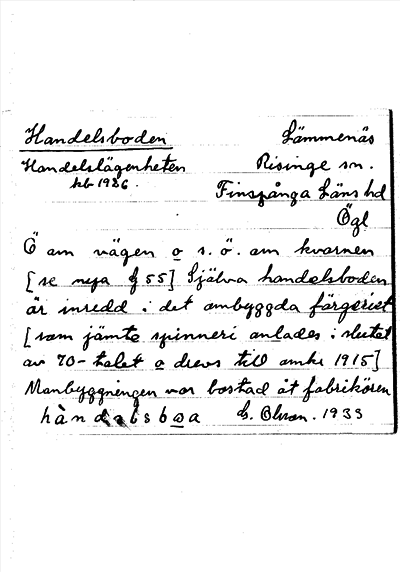 Handelsboden Lämmenäs
Handelslägenheten Risinge sn.
kb 1926. Finspånga Läns hd
Ögl
Ö om vägen o s. ö. om kvarnen
[se nya § 55] Själva handelsboden
är inredd i det ombyggda färgeriet
[som jämte spinneri anlades i slutet
av 70-talet o drevs till omkr 1915]
Manbyggningen var bostad åt fabrikören
hàndalsboa G. Olson. 1933